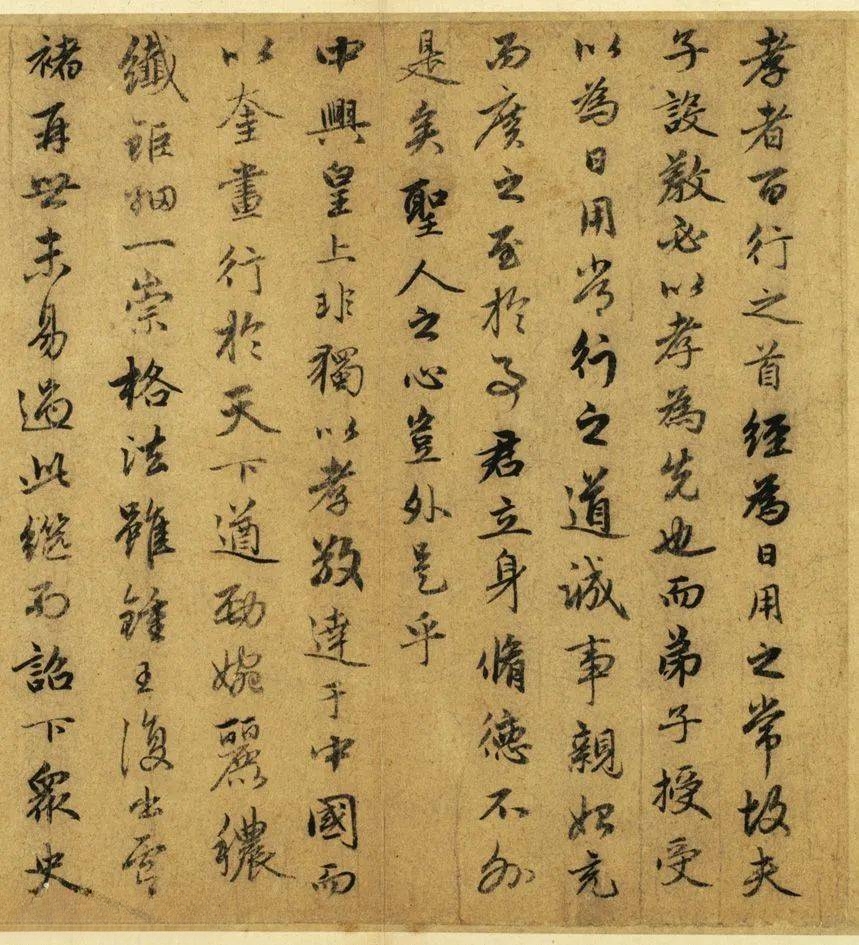 孝者百行之首經為日用之常故夫
子設教必以孝為先也而弟子授受
以為日用常行之道誠事親始充
而廣之至於事君立身脩德不外
是矣聖人之心豈外是乎
中興皇上非獨以孝教達于中國而
以奎畫行於天下遒勁婉麗穠
纖鉅細一崇格法雖鍾王復出虞
褚再世未易過此繼而詔下衆史